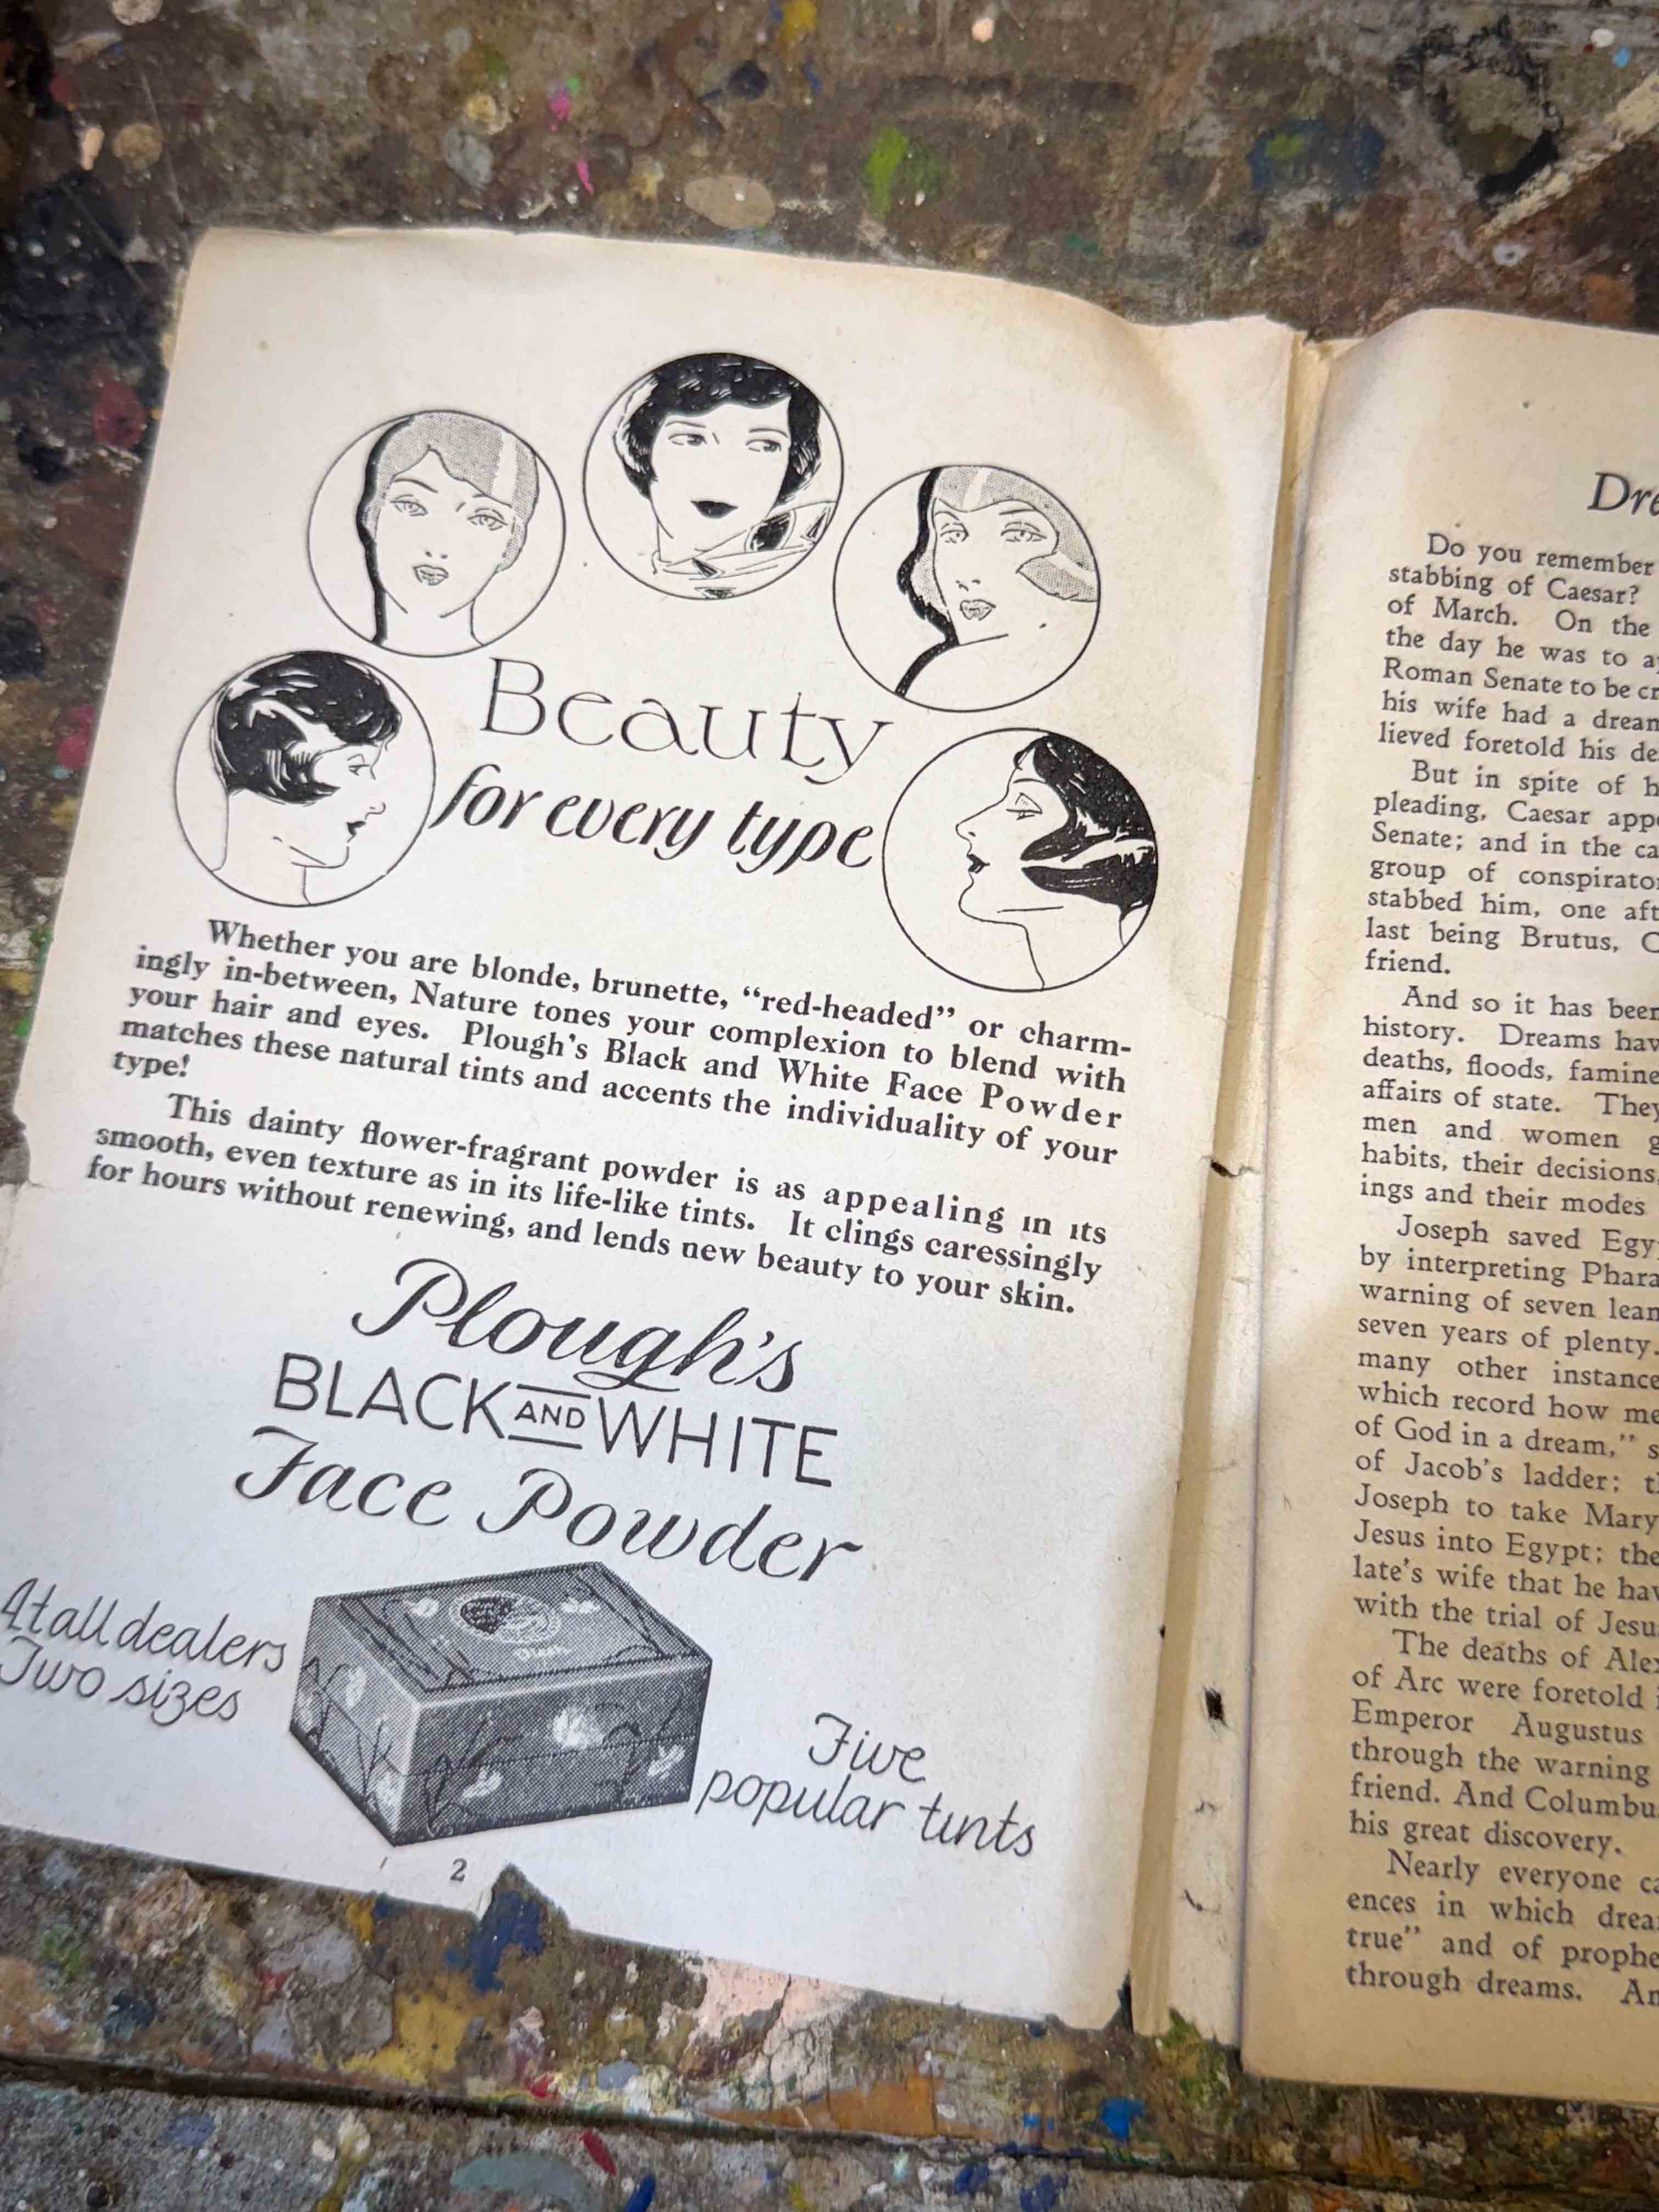 Beauty
for every type
Whether you are blonde, brunette, “red-headed” or charm-
ingly in-between, Nature tones your complexion to blend with
your hair and eyes. Plough’s Black and White Face Powder
matches these natural tints and accents the individuality of your
type!
This dainty flower-fragrant powder is as appealing in its
smooth, even texture as in its life-like tints. It clings caressingly
for hours without renewing, and lends new beauty to your skin.
Plough’s
BLACK AND WHITE
Face Powder
At all dealers
Two sizes
Five
popular tints
2
Dre
Do you remember
stabbing of Caesar?
of March. On the
the day he was to a
Roman Senate to be cr
his wife had a dream
lieved foretold his de
But in spite of h
pleading, Caesar app
Senate; and in the ca
group of conspirator
stabbed him, one aft
last being Brutus, C
friend.
And so it has been
history. Dreams hav
deaths, floods, famine
affairs of state. They
men and women g
habits, their decisions,
ings and their modes
Joseph saved Egy
by interpreting Phara
warning of seven lean
seven years of plenty.
many other instance
which record how me
of God in a dream,” s
of Jacob’s ladder; t
Joseph to take Mary
Jesus into Egypt; the
late’s wife that he hav
with the trial of Jesu
The deaths of Alex
of Arc were foretold i
Emperor Augustus
through the warning
friend. And Columbu
his great discovery.
Nearly everyone ca
ences in which drea
true” and of prophe
through dreams. An